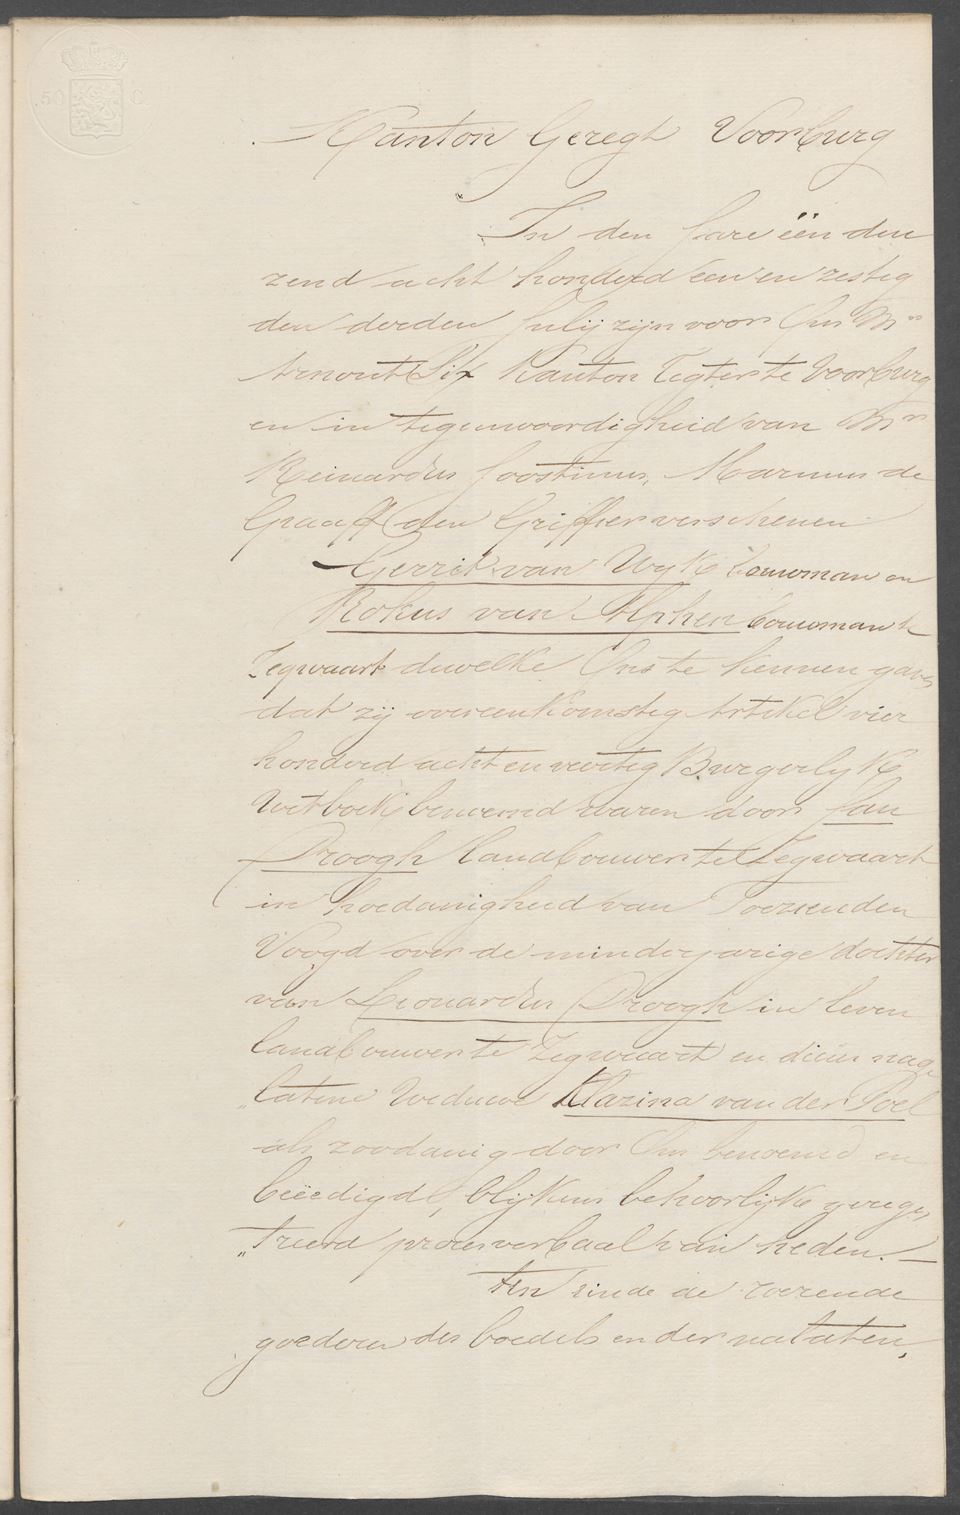 50 C.
Kanton Geregt Voorburg
In den Jare één dui
zend acht honderd een en zestig
den derden Julij zijn voor Ons Mr
Arnout Six Kanton Regter te Voorburg
en in tegenwoordigheid van Mr
Reinardus Joostinus, Marinus de
Graaff den Griffier verschenen
Gerrit van Wyk bouwman en
Rokus van Alphen bouwman te
Zegwaart dewelke Ons te kennen gaven
dat zij overeenkomstig Artikel vier
honderd acht en veertig Burgerlyk
Wetboek benoemd waren door Jan
Droogh Landbouwer te Zegwaart
in hoedanigheid van Toezienden
Voogd over de minderjarige dochter
van Leonardus Droogh in leven
landbouwer te Zegwaart en diens nage
„latene Weduwe Klazina van der Poel
als zoodanig door Ons benoemd en
beëedigd, blijkens behoorlijke geregis
„treerd procesverbaal van heden. —
Ten einde de roerende
goederen des boedels en der nalaten,